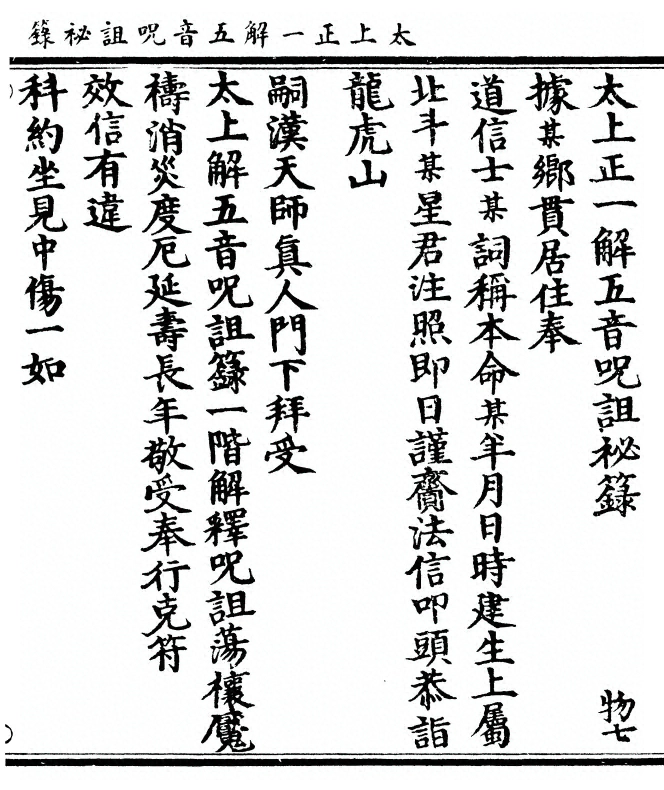 太上正一解五音呪詛祕籙
太上正一解五音呪詛祕籙　物七
據某鄉貫居住奉
道信士某詞稱本命某年月日時建生上屬
北斗某星君注照即日謹齎法信叩頭恭詣
龍虎山
嗣漢天師眞人門下拜受
太上解五音呪詛籙一階解釋呪詛蕩穰魘
禱消災度厄延壽長年敬受奉行克符
效信有違
科約坐見中傷一如